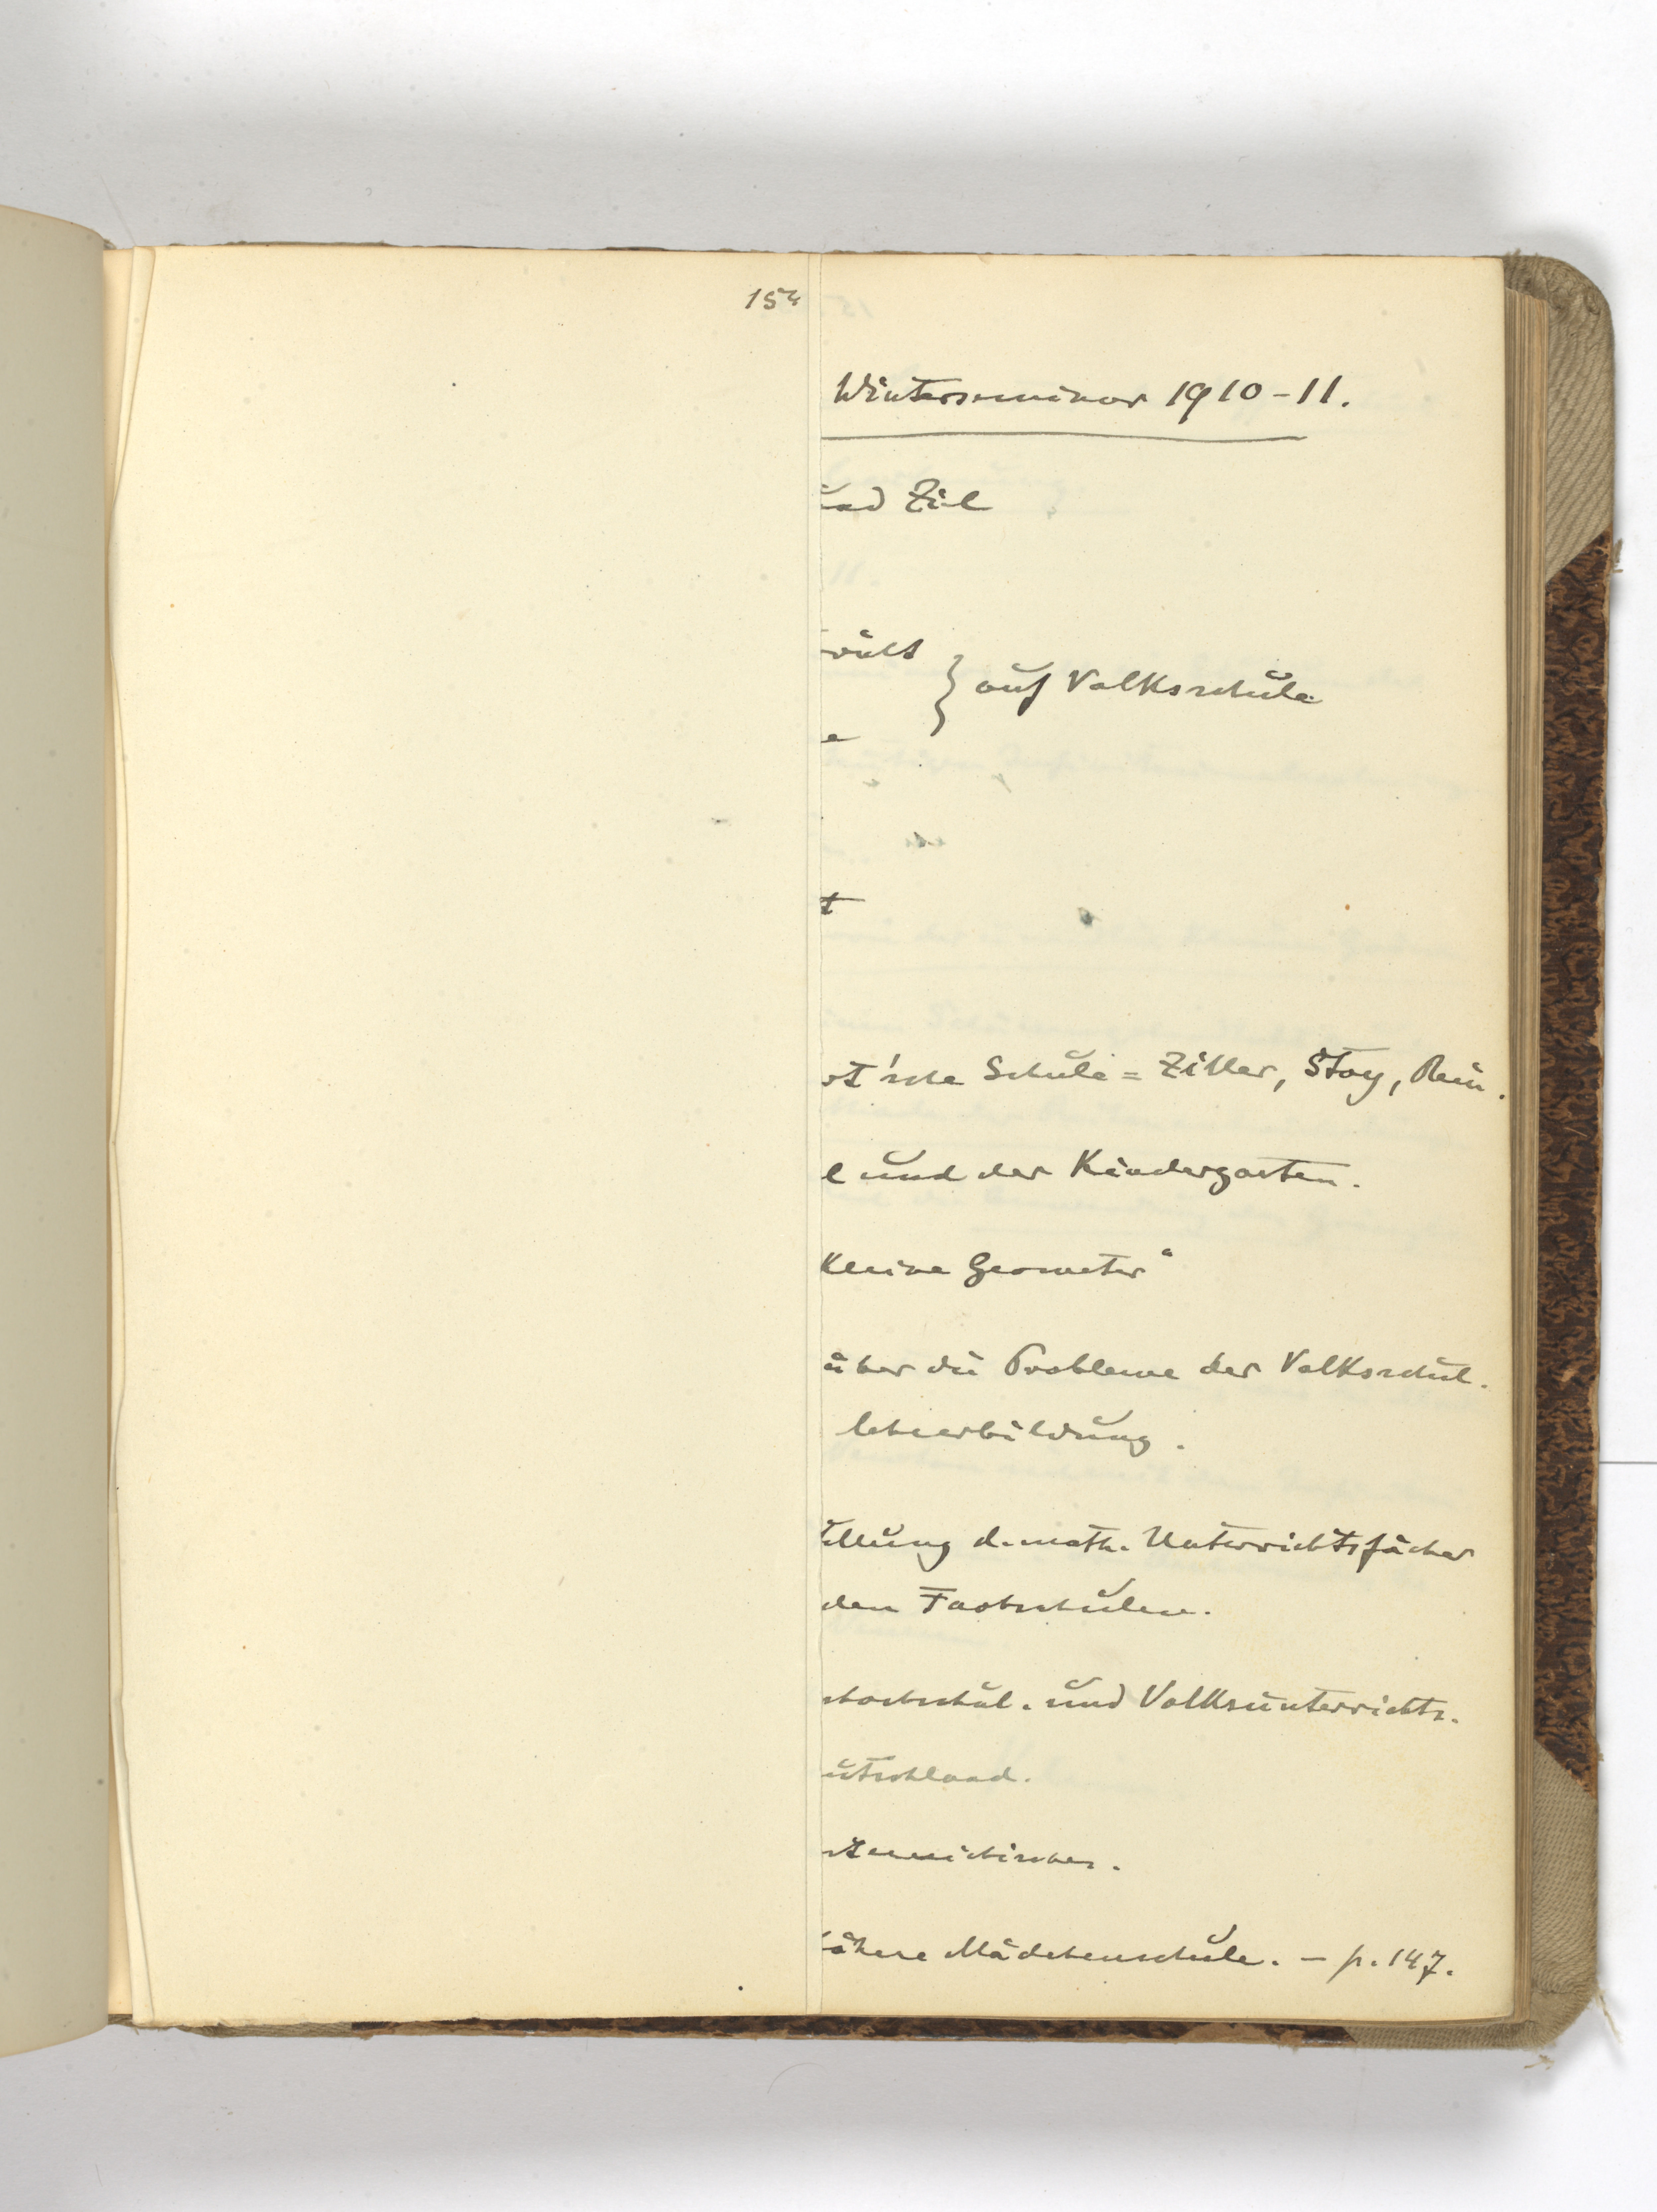 154
Winterseminar 1910-11.
und Ziel
auf Volksschule
e
t
ot'sche Schule = Ziller, Stoy, Rein.
l und der Kindergarten.
kleine Geometer"
über die Probleme der Volksschul-
lehrerbildung.
llung d. math. Unterrichtsfächer
den Fachschulen.
hochschul- und Volksunterrichts-
utschland.
höhere Mädchenschule. - p. 147.